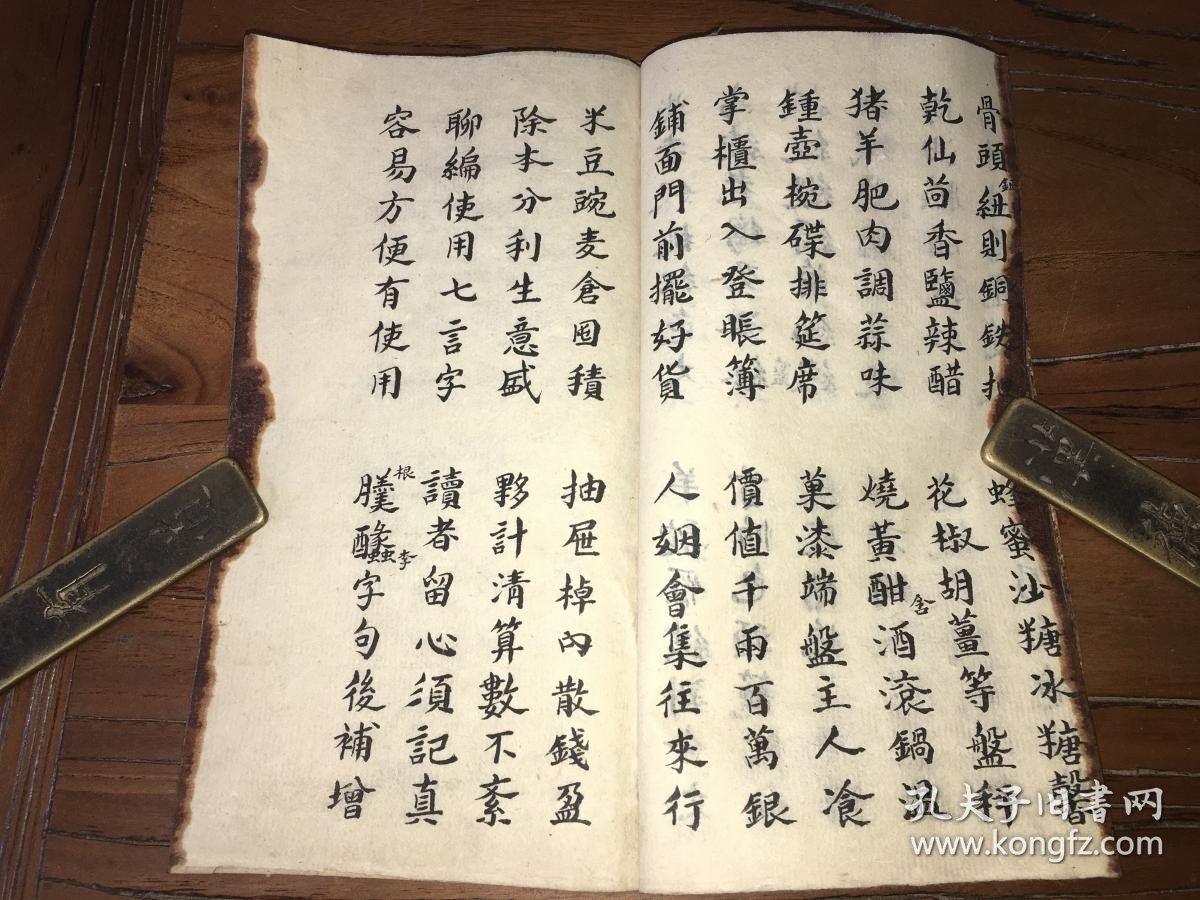 骨頭紐則銅鉄扣 蜂蜜沙糖冰糖馨
乾仙茴香鹽辣醋 花椒胡薑等盤秤
猪羊肥肉調蒜味 燒黃酣含酒滾鍋温
鍾壺椀碟排筵席 菓漆端盤主人飡
掌櫃出入登賬簿 價值千兩百萬銀
鋪面門前擺好貨 人姻會集往來行
米豆豌麦倉囤積 抽屉棹內散錢盈
除本分利生意盛 夥計清算數不紊
聊編使用七言字 讀者留心須記真
容易方便有使用 根李字句後補增
孔夫子旧书网
www.kongfz.com